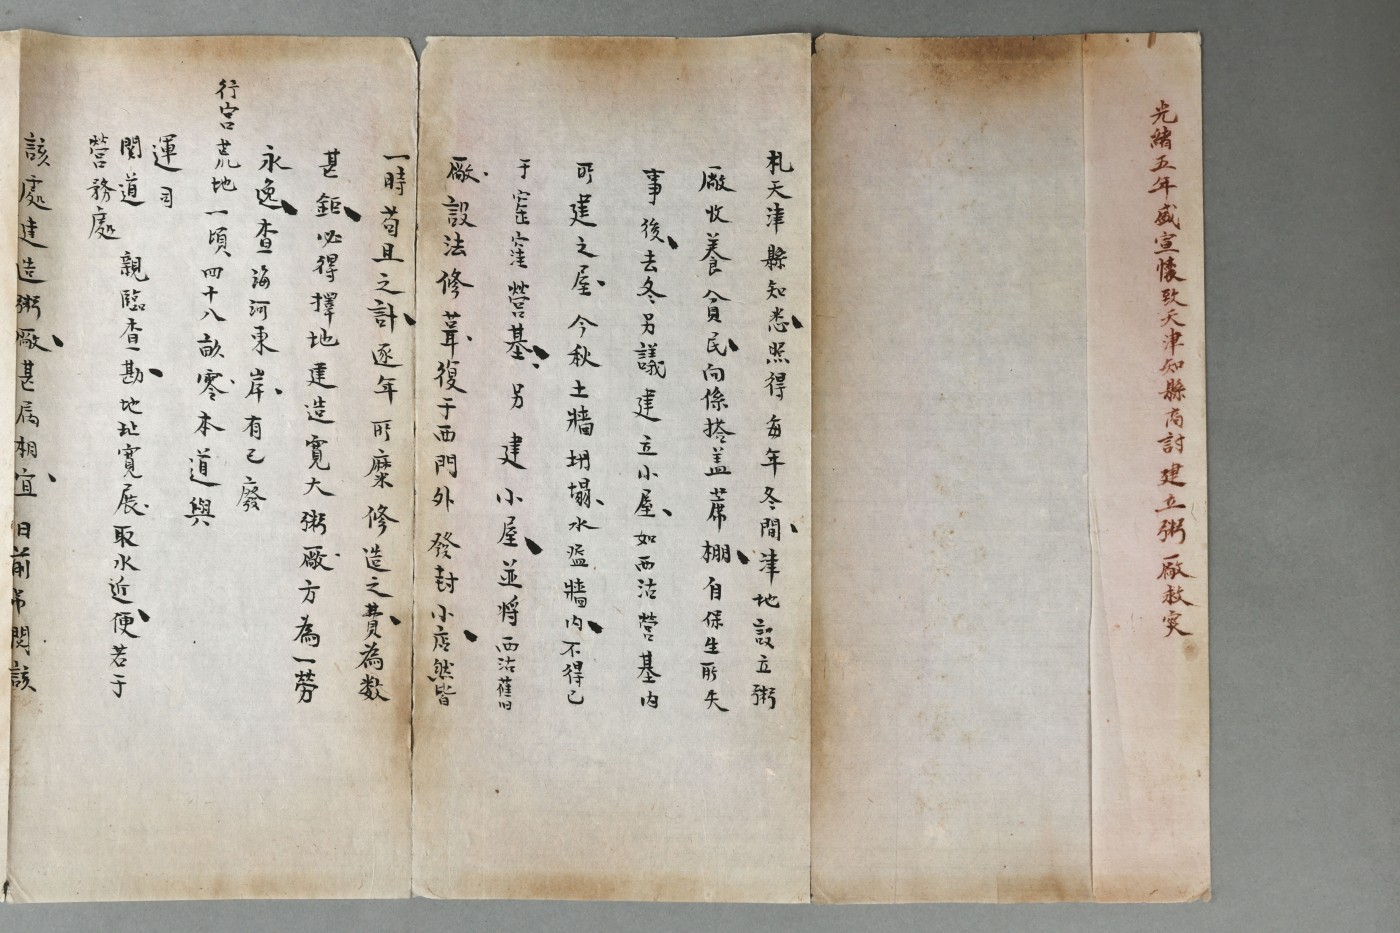 光緒五年盛宣懷致天津知縣商討建立粥廠救災
札天津縣知悉照得每年冬間津地設立粥
廠收養貧民向係搭盖蓆棚自保生所失
事後去冬另議建立小屋如西沽營基内
所建之屋今秋土牆坍塌水盈牆内不得已
于窪窪營基另建小屋並將西沽舊
廠設法修葺復于西門外發封小店然皆
一時苟且之計逐年所糜修造之費為数
甚鉅必得擇地建造寬大粥廠方為一劳
永逸查海河東岸有已廢
行宮荒地一頃四十八畝零本道與
運司
関道
營務處
親臨查勘地址寬展取水近便若于
該處建造粥廠甚属相宜日前帶関該